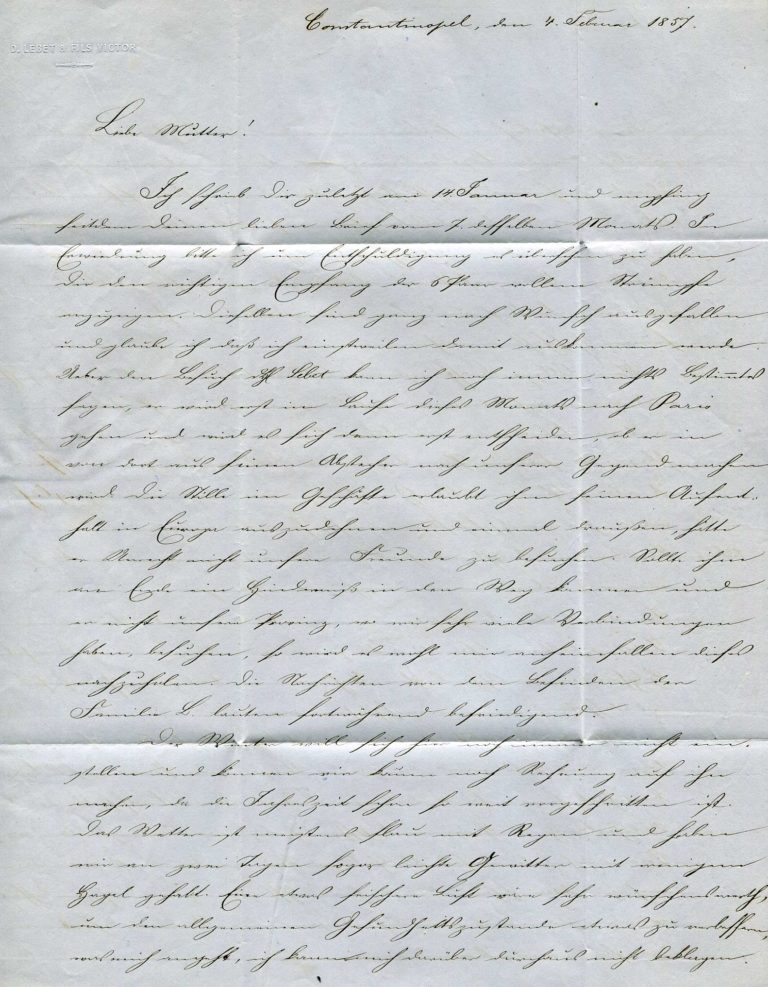 Constantinopel, den 4. Februar 1857.
D. LEBET & FILS VICTOR
Liebe Mutter!
Ich schrieb Dir zuletzt am 14 Januar und empfing
seitdem Deinen lieben Brief vom 7. desselben Monats. In
Erwiederung bitte ich um Entschuldigung es übersehen zu haben,
Dir den richtigen Empfang der 6 Paar wollene Strümpfe
anzuzeigen. Dieselben sind ganz nach Wunsch ausgefallen
und glaube ich daß ich einstweilen damit auskommen werde.
Ueber den Besuch Lebet kann ich noch immer nichts Bestimmtes
sagen, er wird erst im Laufe dieses Monats nach Paris
gehen und wird es sich dann erst entscheiden, ob er
von dort aus seinen Abstecher nach unserer Gegend machen
wird. Die Stille im Geschäfte erlaubt ihm seinen Aufent-
halt in Europa auszudehnen und einmal draußen, hätte
er Unrecht nicht unsere Freunde zu besuchen. Sollte ihm
am Ende ein Hinderniß in den Weg kommen und
er nicht unsere Provinz, wo wir sehr viele Verbindungen
haben, besuchen, so wird es wohl mir anheimfallen dieses
nachzuholen. Die Nachrichten von dem Befinden der
Familie L. lauten fortwährend befriedigend.
Der Winter will sich hier noch immer nicht ein-
stellen und können wir kaum noch Rechnung auf ihn
machen, da die Jahreszeit schon so weit vorgeschritten ist.
Das Wetter ist meistens flau mit Regen und haben
wir an zwei Tagen sogar leichte Gewitter mit wenigem
Hagel gehabt. Eine etwas frischere Luft wäre sehr wünschenswerth,
um den allgemeinen Gesundheitszustande etwas zu verbessern,
was mich angeht, ich kann mich darüber durchaus nicht beklagen.